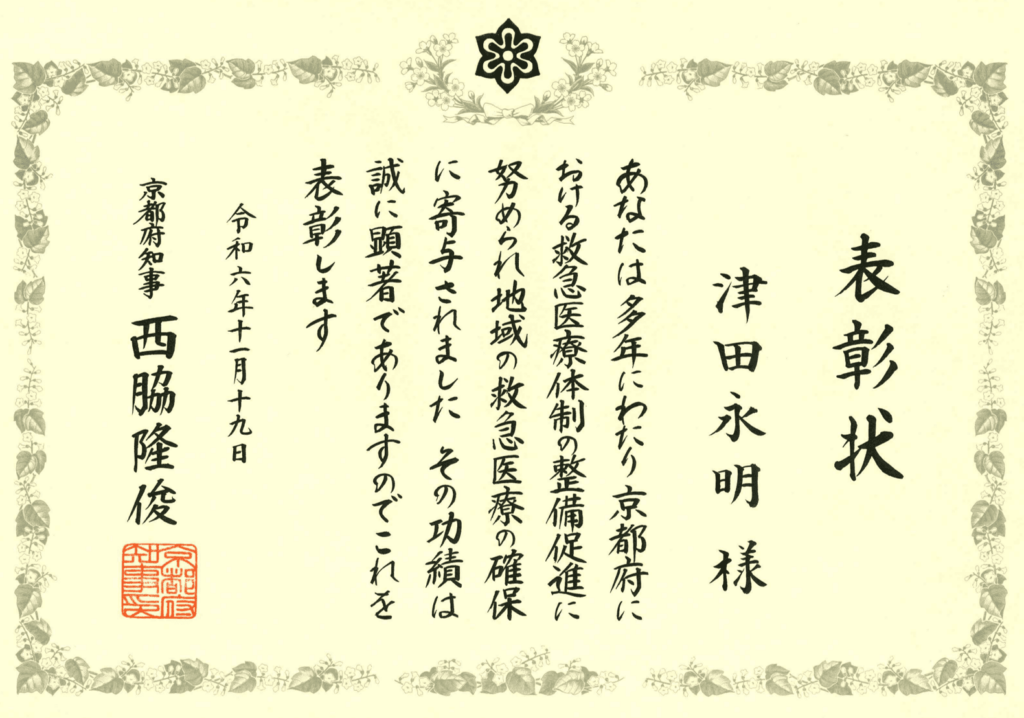 表彰状
津田永明 様
あなたは多年にわたり京都府に
おける救急医療体制の整備促進に
努められ地域の救急医療の確保
に寄与されました その功績は
誠に顕著でありますのでこれを
表彰します
令和六年十一月十九日
京都府知事 西脇隆俊
京都府
知事之印